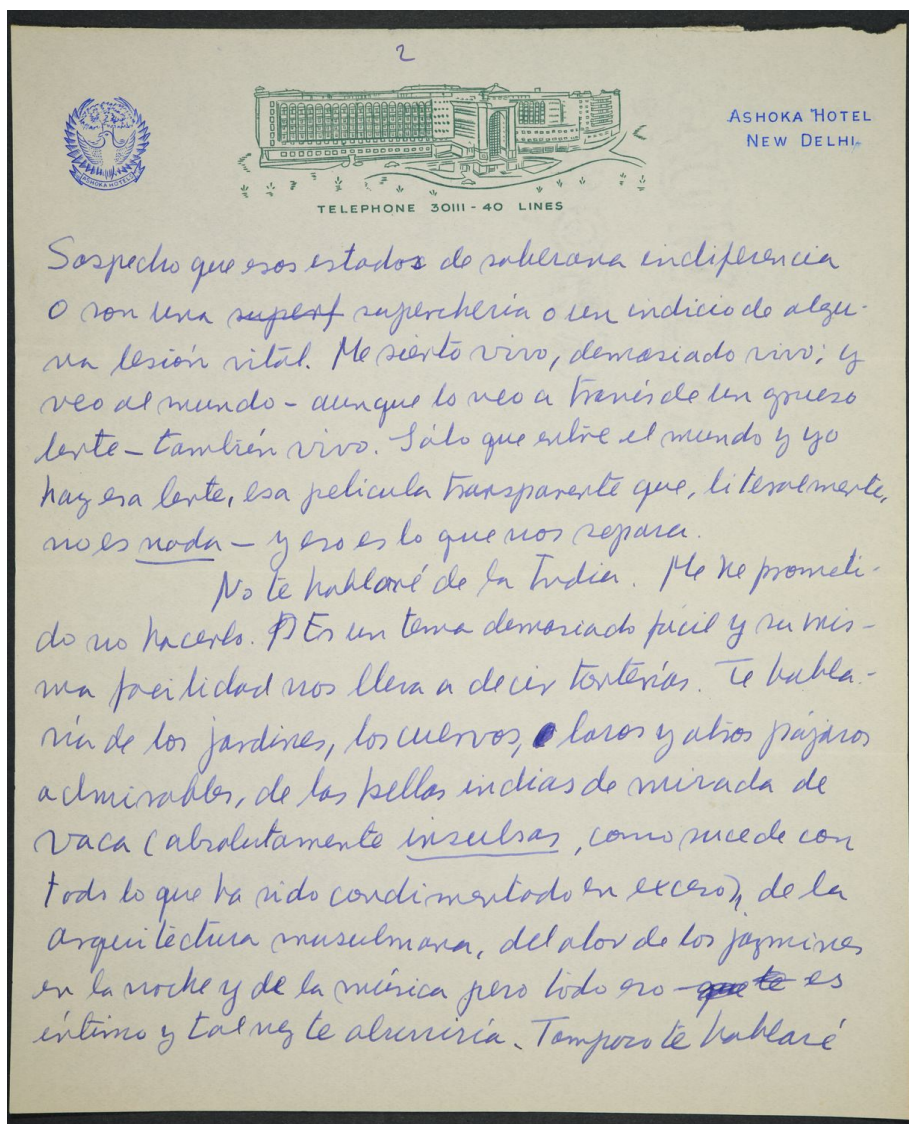 2
ASHOKA HOTEL
NEW DELHI
ASHOKA HOTELS
TELEPHONE 30111 - 40 LINES
Sospecho que esos estados de soberana indiferencia
o son una superf superchería o un indicio de algu-
na lesión vital. Me siento vivo, demasiado vivo; y
veo al mundo - aunque lo veo a través de un grueso
lente - también vivo. Sólo que entre el mundo y yo
hay esa lente, esa película transparente que, literalmente,
no es nada - y eso es lo que nos separa.
No te hablaré de la India. Me he prometi-
do no hacerlo. Es un tema demasiado fácil y su mis-
ma facilidad nos lleva a decir tonterías. Te habla-
ría de los jardines, los cuervos, loros y otros pájaros
admirables, de las bellas indias de mirada de
vaca (absolutamente insulsas, como sucede con
todo lo que ha sido condimentado en exceso), de la
arquitectura musulmana, del olor de los jazmines
en la noche y de la música pero todo eso que te es
íntimo y tal vez te aburriría. Tampoco te hablaré